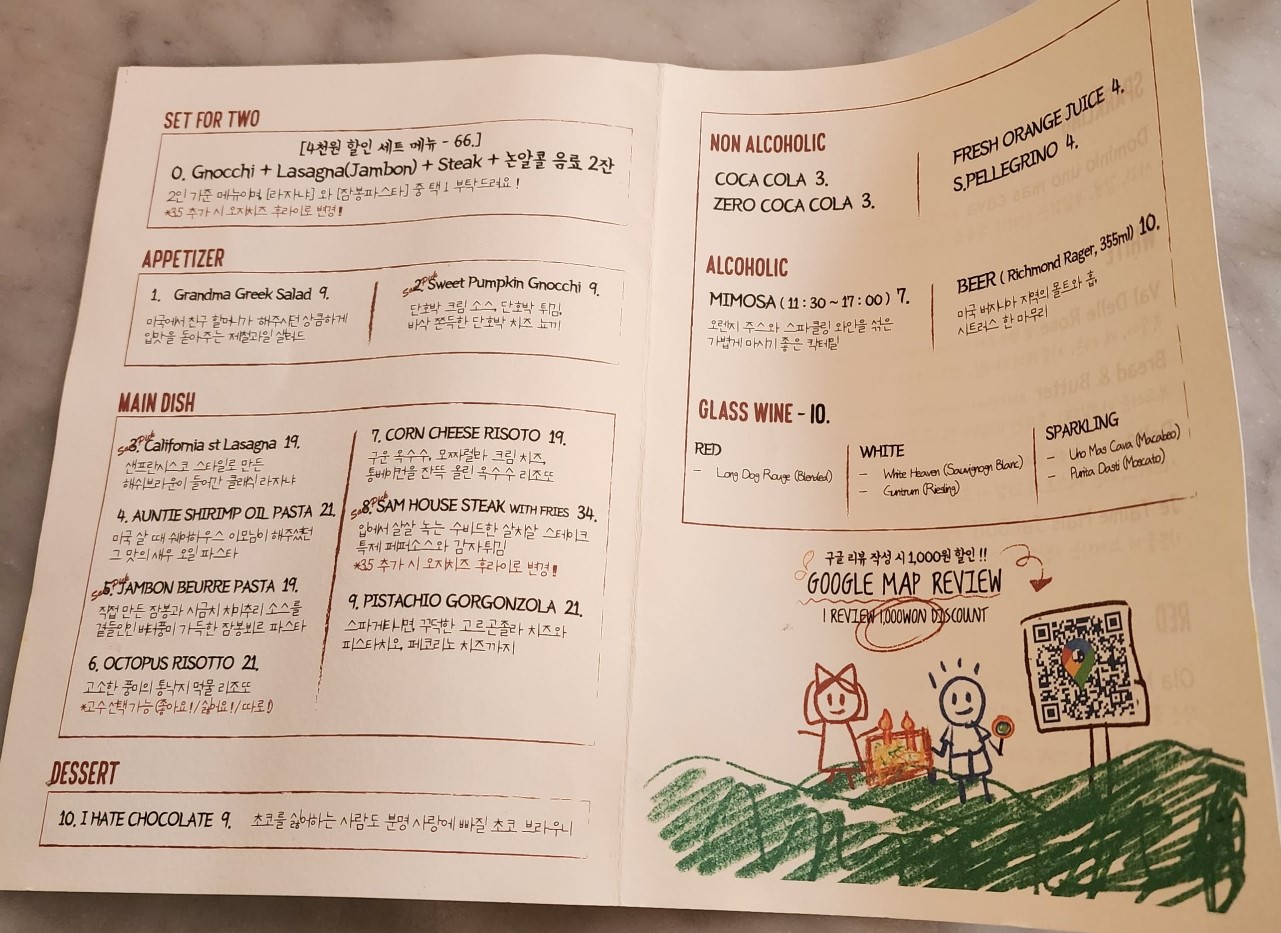 SET FOR TWO
[4천원 할인 세트 메뉴 - 66.]
0. Gnocchi + Lasagna(Jambon) + Steak + 논알콜 음료 2잔
2인 기준 메뉴이며, [라자냐] 와 [잠봉파스타] 중 택1 부탁드려요!
*3.5 추가 시 오지치즈 후라이로 변경!
APPETIZER
1. Grandma Greek Salad 9.
미국에서 친구 할머니가 해주시던 상큼하게
입맛을 돋아주는 제철과일 샐러드
2. Sweet Pumpkin Gnocchi 9.
단호박 크림 소스, 단호박 튀김,
바삭 쫀득한 단호박 치즈 뇨끼
MAIN DISH
3. California st Lasagna 19.
샌프란시스코 스타일로 만든
해쉬브라운이 들어간 클래식 라자냐
4. AUNTIE SHIRIMP OIL PASTA 21.
미국 살 때 쉐어하우스 이모님이 해주셨던
그 맛의 새우 오일 파스타
5. JAMBON BEURRE PASTA 19.
직접 만든 잠봉과 시금치 치미추리 소스를
곁들인 버터풍미 가득한 잠봉뵈르 파스타
6. OCTOPUS RISOTTO 21.
고소한 풍미의 통낙지 먹물 리조또
*고수선택 가능 (좋아요!/싫어요!/따로!)
7. CORN CHEESE RISOTO 19.
구운 옥수수, 모짜렐라 크림 치즈,
통베이컨을 잔뜩 올린 옥수수 리조또
8. SAM HOUSE STEAK WITH FRIES 34.
입에서 살살 녹는 수비드한 살치살 스테이크
특제 페퍼소스와 감자튀김
*3.5 추가 시 오지치즈 후라이로 변경!
9. PISTACHIO GORGONZOLA 21.
스파게티니면, 꾸덕한 고르곤졸라 치즈와
피스타치오, 페코리노 치즈까지
DESSERT
10. I HATE CHOCOLATE 9. 초코를 싫어하는 사람도 분명 사랑에 빠질 초코 브라우니
NON ALCOHOLIC
COCA COLA 3.
ZERO COCA COLA 3.
FRESH ORANGE JUICE 4.
S.PELLEGRINO 4.
ALCOHOLIC
MIMOSA ( 11 : 30 ~ 17 : 00 ) 7.
오렌지 주스와 스파클링 와인을 섞은
가볍게 마시기 좋은 칵테일
BEER ( Richmond Rager, 355ml) 10.
미국 버지니아 지역의 몰트와 홉,
시트러스 한 마무리
GLASS WINE - 10.
RED
- Long Dog Rouge (Blended)
WHITE
- White Heaven (Sauvignogn Blanc)
- Guntrum (Riesling)
SPARKLING
- Uno Mas Cava (Macabeo)
- Punta Dasti (Moscato)
구글 리뷰 작성 시 1,000원 할인 !!
GOOGLE MAP REVIEW
1 REVIEW 1,000WON DISCOUNT